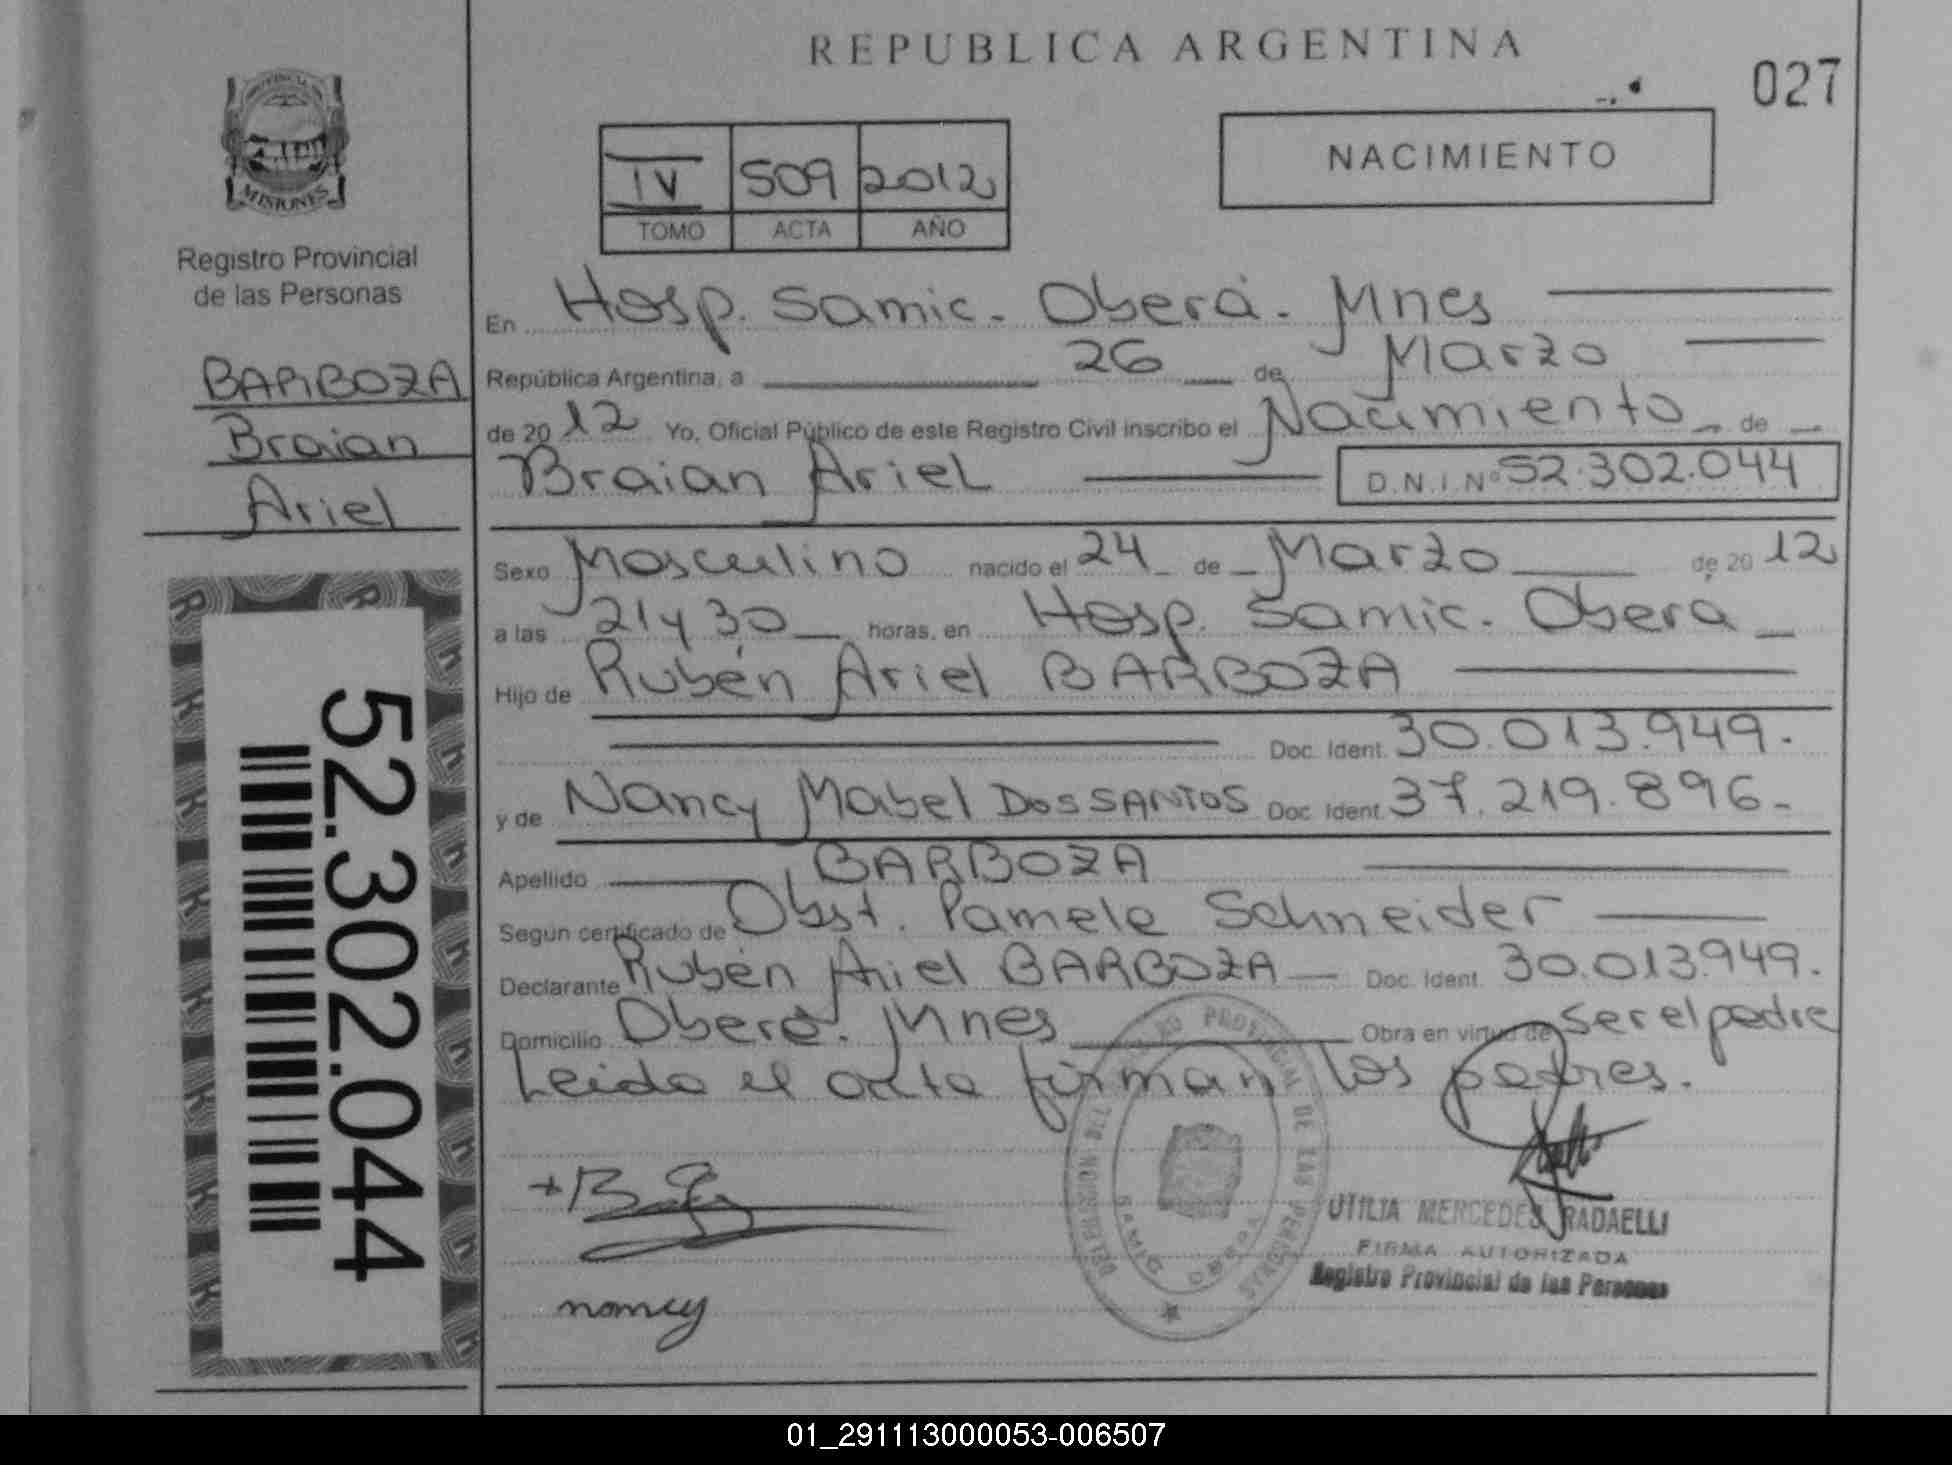 REPUBLICA ARGENTINA
027
PROVINCIA
MISIONES
Registro Provincial
de las Personas
BARBOZA
Braian
Ariel
52.302.044
IV 509 2012
TOMO ACTA AÑO
NACIMIENTO
En Hosp. Samic. Oberá. Mnes
República Argentina, a 26 de Marzo
de 2012 Yo, Oficial Público de este Registro Civil inscribo el Nacimiento de
Braian Ariel D.N.I. Nº 52.302.044
Sexo Masculino nacido el 24 de Marzo de 2012
a las 21 y 30 horas, en Hosp. Samic. Oberá
Hijo de Rubén Ariel BARBOZA
Doc. Ident. 30.013.949.
y de Nancy Mabel DOSSANTOS Doc. Ident. 37.219.896
Apellido BARBOZA
Según certificado de Obst. Pamela Schneider
Declarante Rubén Ariel BARBOZA Doc. Ident. 30.013.949.
Domicilio Oberá. Mnes Obra en virtud de ser el padre
Leida el acta firman los padres.
REGISTRO PROVINCIAL DE LAS PERSONAS
OBERA
nancy
OTILIA MERCEDES RADAELLI
FIRMA AUTORIZADA
Registro Provincial de las Personas
01_291113000053-006507